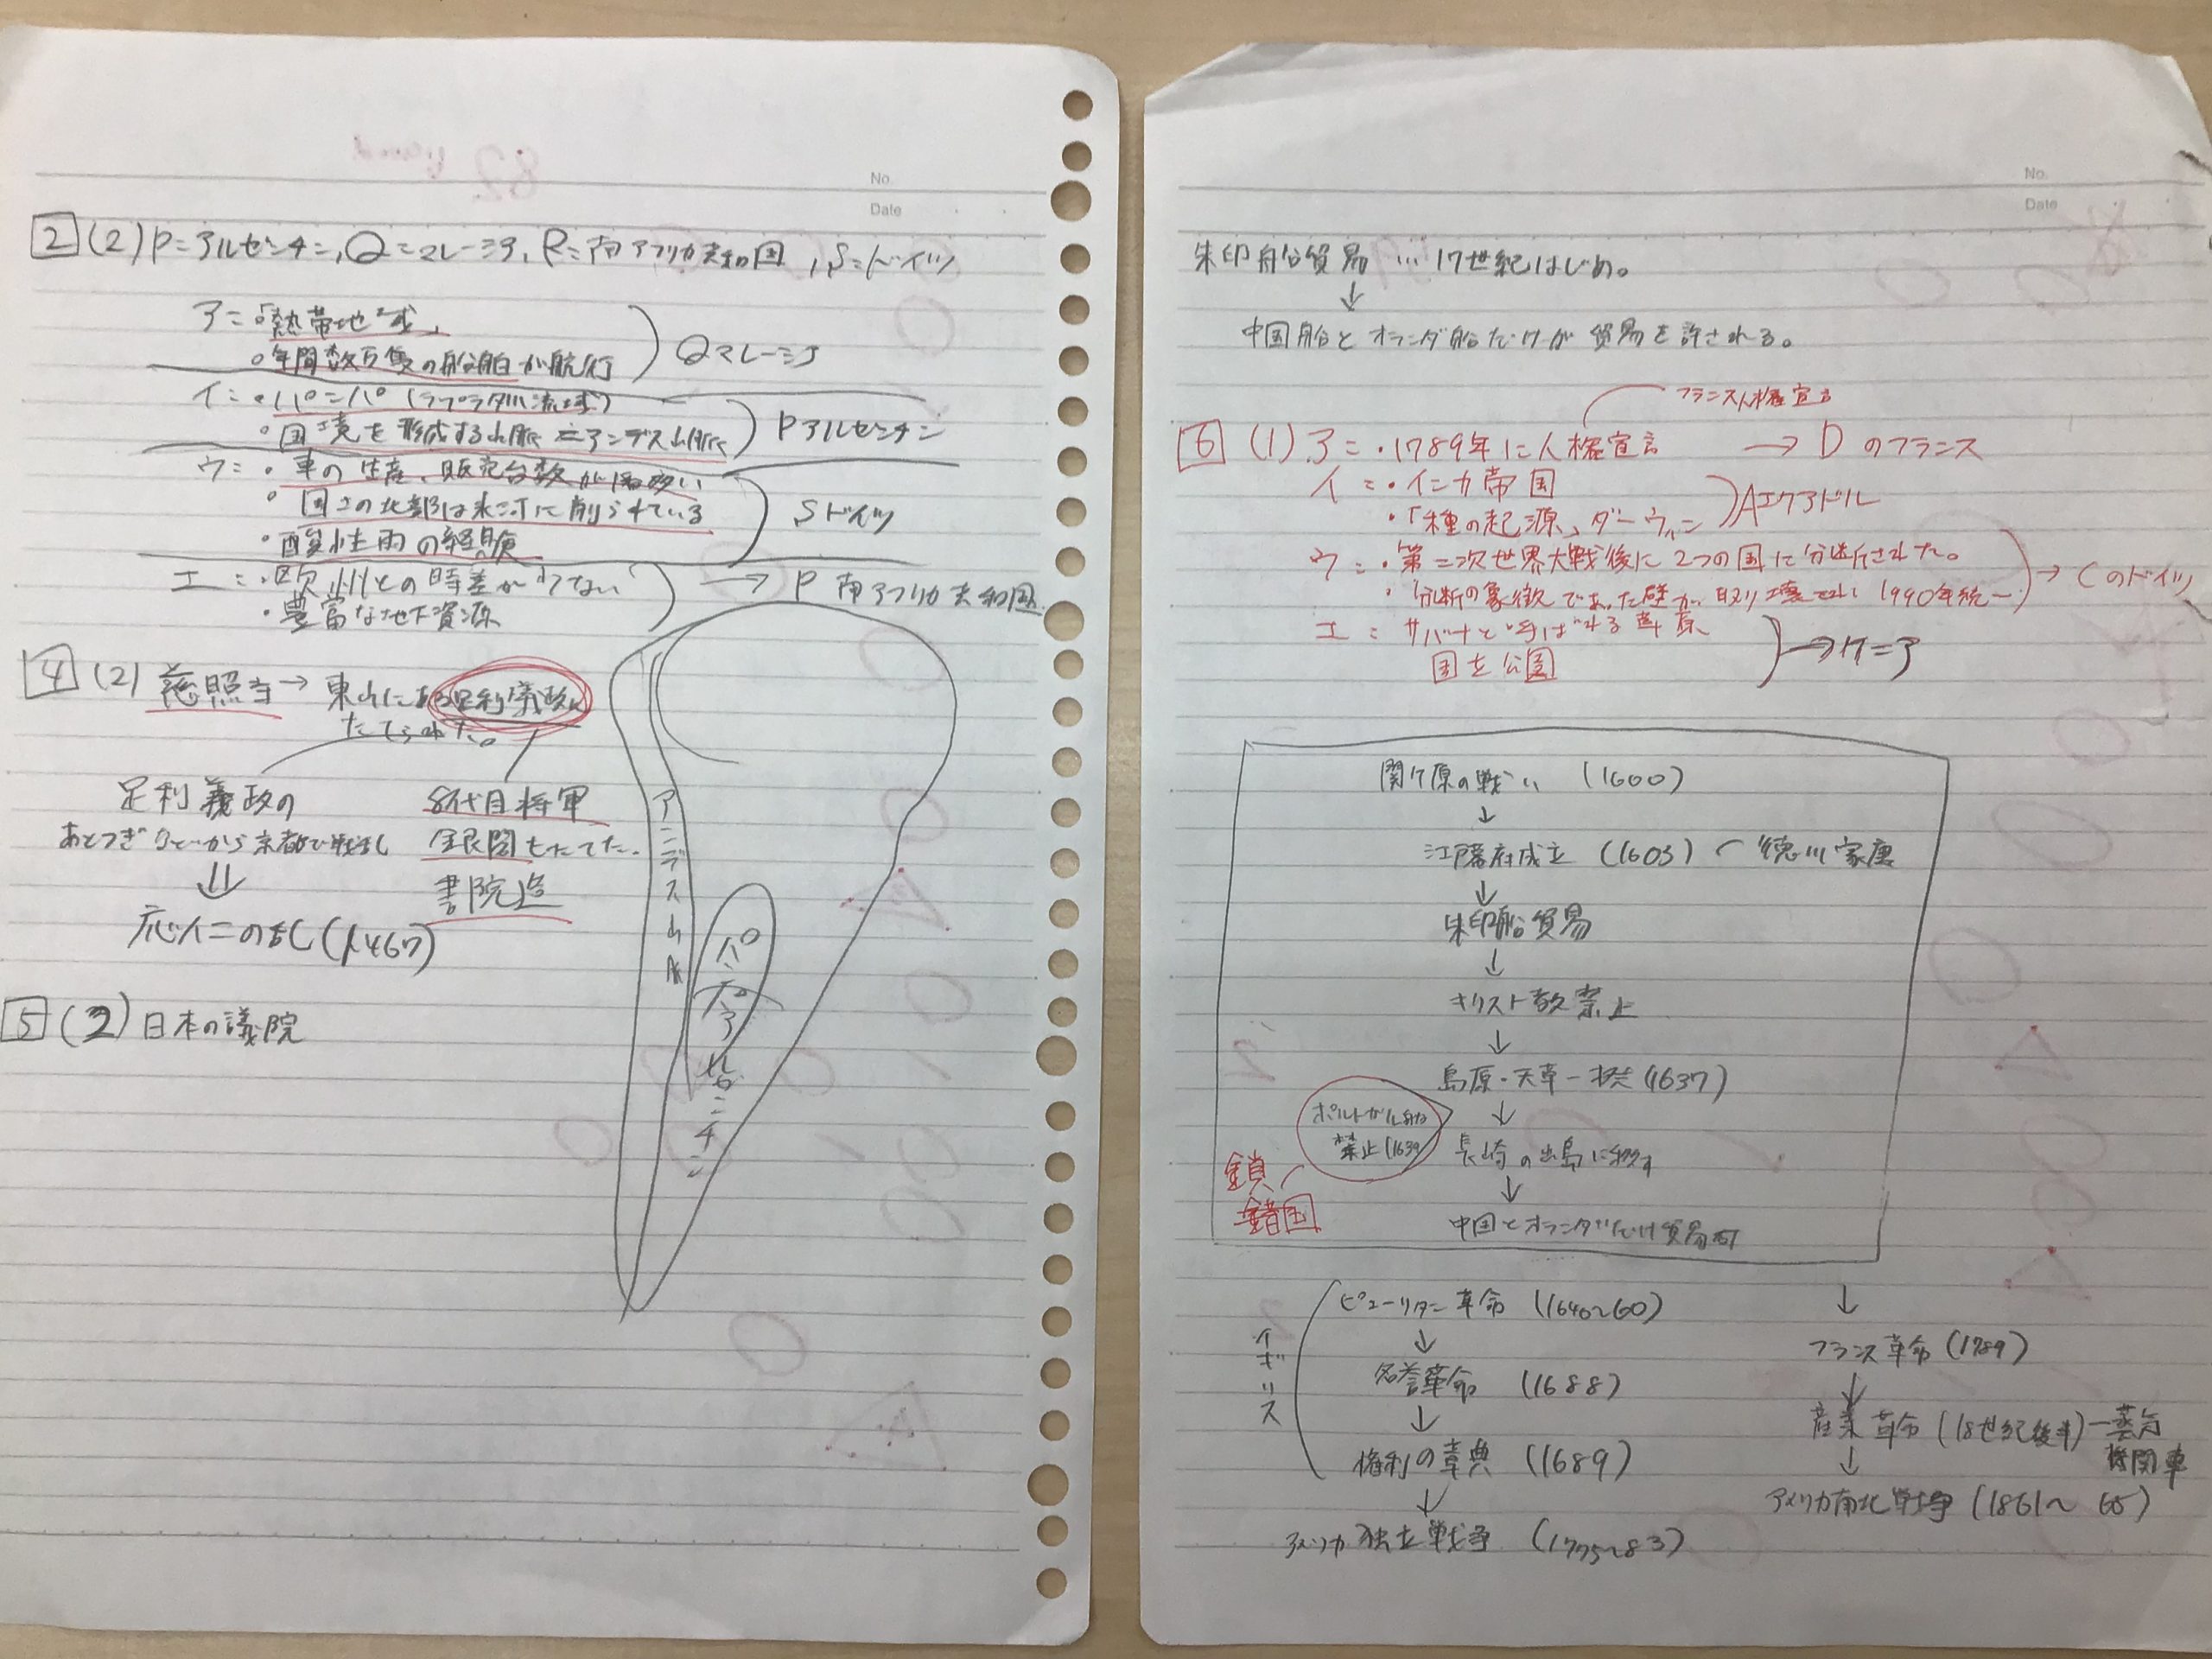 No.
Date
2 (2) P=アルゼンチン, Q=マレーシア, R=南アフリカ共和国, S=ドイツ
ア=。「熱帯地域」
。年間数万隻の船舶が航行
Qマレーシア
イ=・パンパ(ラプラタ川流域)
・国境を形成する山脈=アンデス山脈
Pアルゼンチン
ウ=・車の生産、販売台数が
・国土の北部は氷河に削られている
・酸性雨の経験
Sドイツ
エ=・欧州との時差が少ない
・豊富な地下資源
→ P 南アフリカ共和国
4 (2) 慈照寺→東山にある足利義政に
たてられた。
足利義政の
あとつぎ争いから京都で戦乱
⇓
応仁の乱(1467)
8代目将軍
銀閣もたてた。
書院造
アンデス山脈
パンパ
アルゼンチン
5 (2) 日本の議院
No.
Date
朱印船貿易 … 17世紀はじめ。
↓
中国船とオランダ船だけが貿易を許される。
フランス人権宣言
6 (1) ア=・1789年に人権宣言 → Dのフランス
イ=・インカ帝国
・「種の起源」ダーウィン
Aエクアドル
ウ=・第二次世界大戦後に2つの国に分断された。
・分断の象徴であった壁が取り壊され 1990年統一
→Cのドイツ
エ=サバナと呼ばれる草原
国立公園
→ケニア
関ケ原の戦い (1600)
↓
江戸幕府成立 (1603) 徳川家康
↓
朱印船貿易
↓
キリスト教禁止
↓
島原・天草一揆(1637)
↓
ポルトガル船
禁止(1639
長崎の出島に移す
↓
鎖
鎖国
中国とオランダだけ貿易可
イギリス
ピューリタン革命 (1640~60)
↓
名誉革命 (1688)
↓
権利の章典 (1689)
↓
アメリカ独立戦争 (1775~83)
↓
フランス革命 (1789)
↓
産業革命 (18世紀後半)ー蒸気
機関車
↓
アメリカ南北戦争 (1861~65)